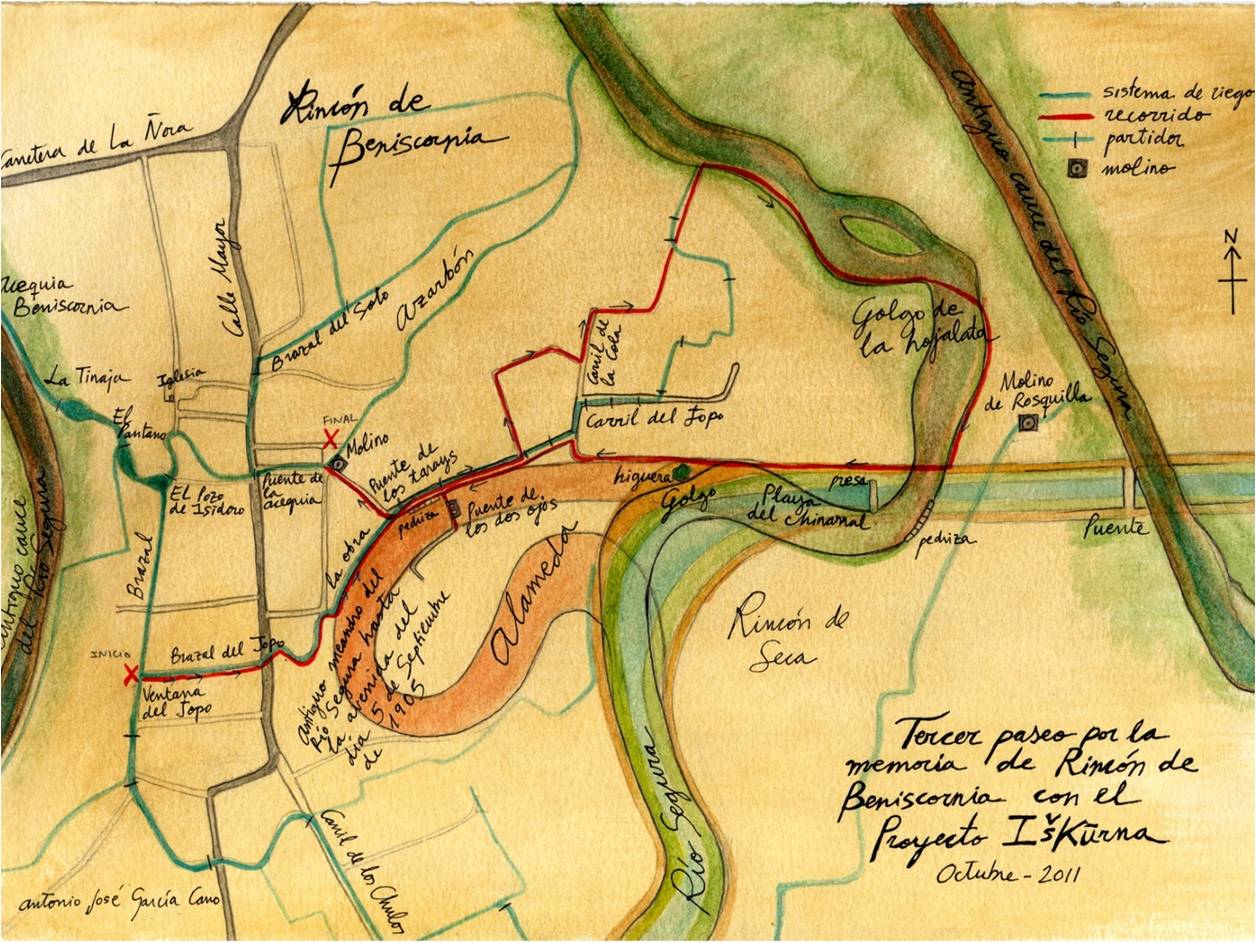 Rincón de
Beniscornia
Carretera de La Ñora
sistema de riego
recorrido
partidor
molino
N
Antiguo cauce del Río Segura
Calle Mayor
Acequia
Beniscornia
Brazal del Soto
Azarbón
Carril de
la Cola
Golgo de
la hojalata
La Tinaja
Iglesia
El
Pantano
FINAL
Molino
Molino
de Rosquilla
Carril del Jopo
Puente de
los tarays
El Pozo
de Isidoro
Puente de
la
acequia
higuera
Golgo
Playa
del Chinarral
presa
Puente de
los dos ojos
pedriza
pedriza
Puente
Antiguo cauce
del Río Segura
la obra
Brazal
Alameda
Rincón de
Seca
INICIO
Brazal del Jopo
Ventana
del Jopo
Antiguo meandro del
Río Segura hasta
la avenida del
día 5 de Septiembre
de 1905
Río Segura
Carril de los Chulos
Tercer paseo por la
memoria de Rincón de
Beniscornia con el
Proyecto Iškūrna
Octubre - 2011
antonio José García Cano